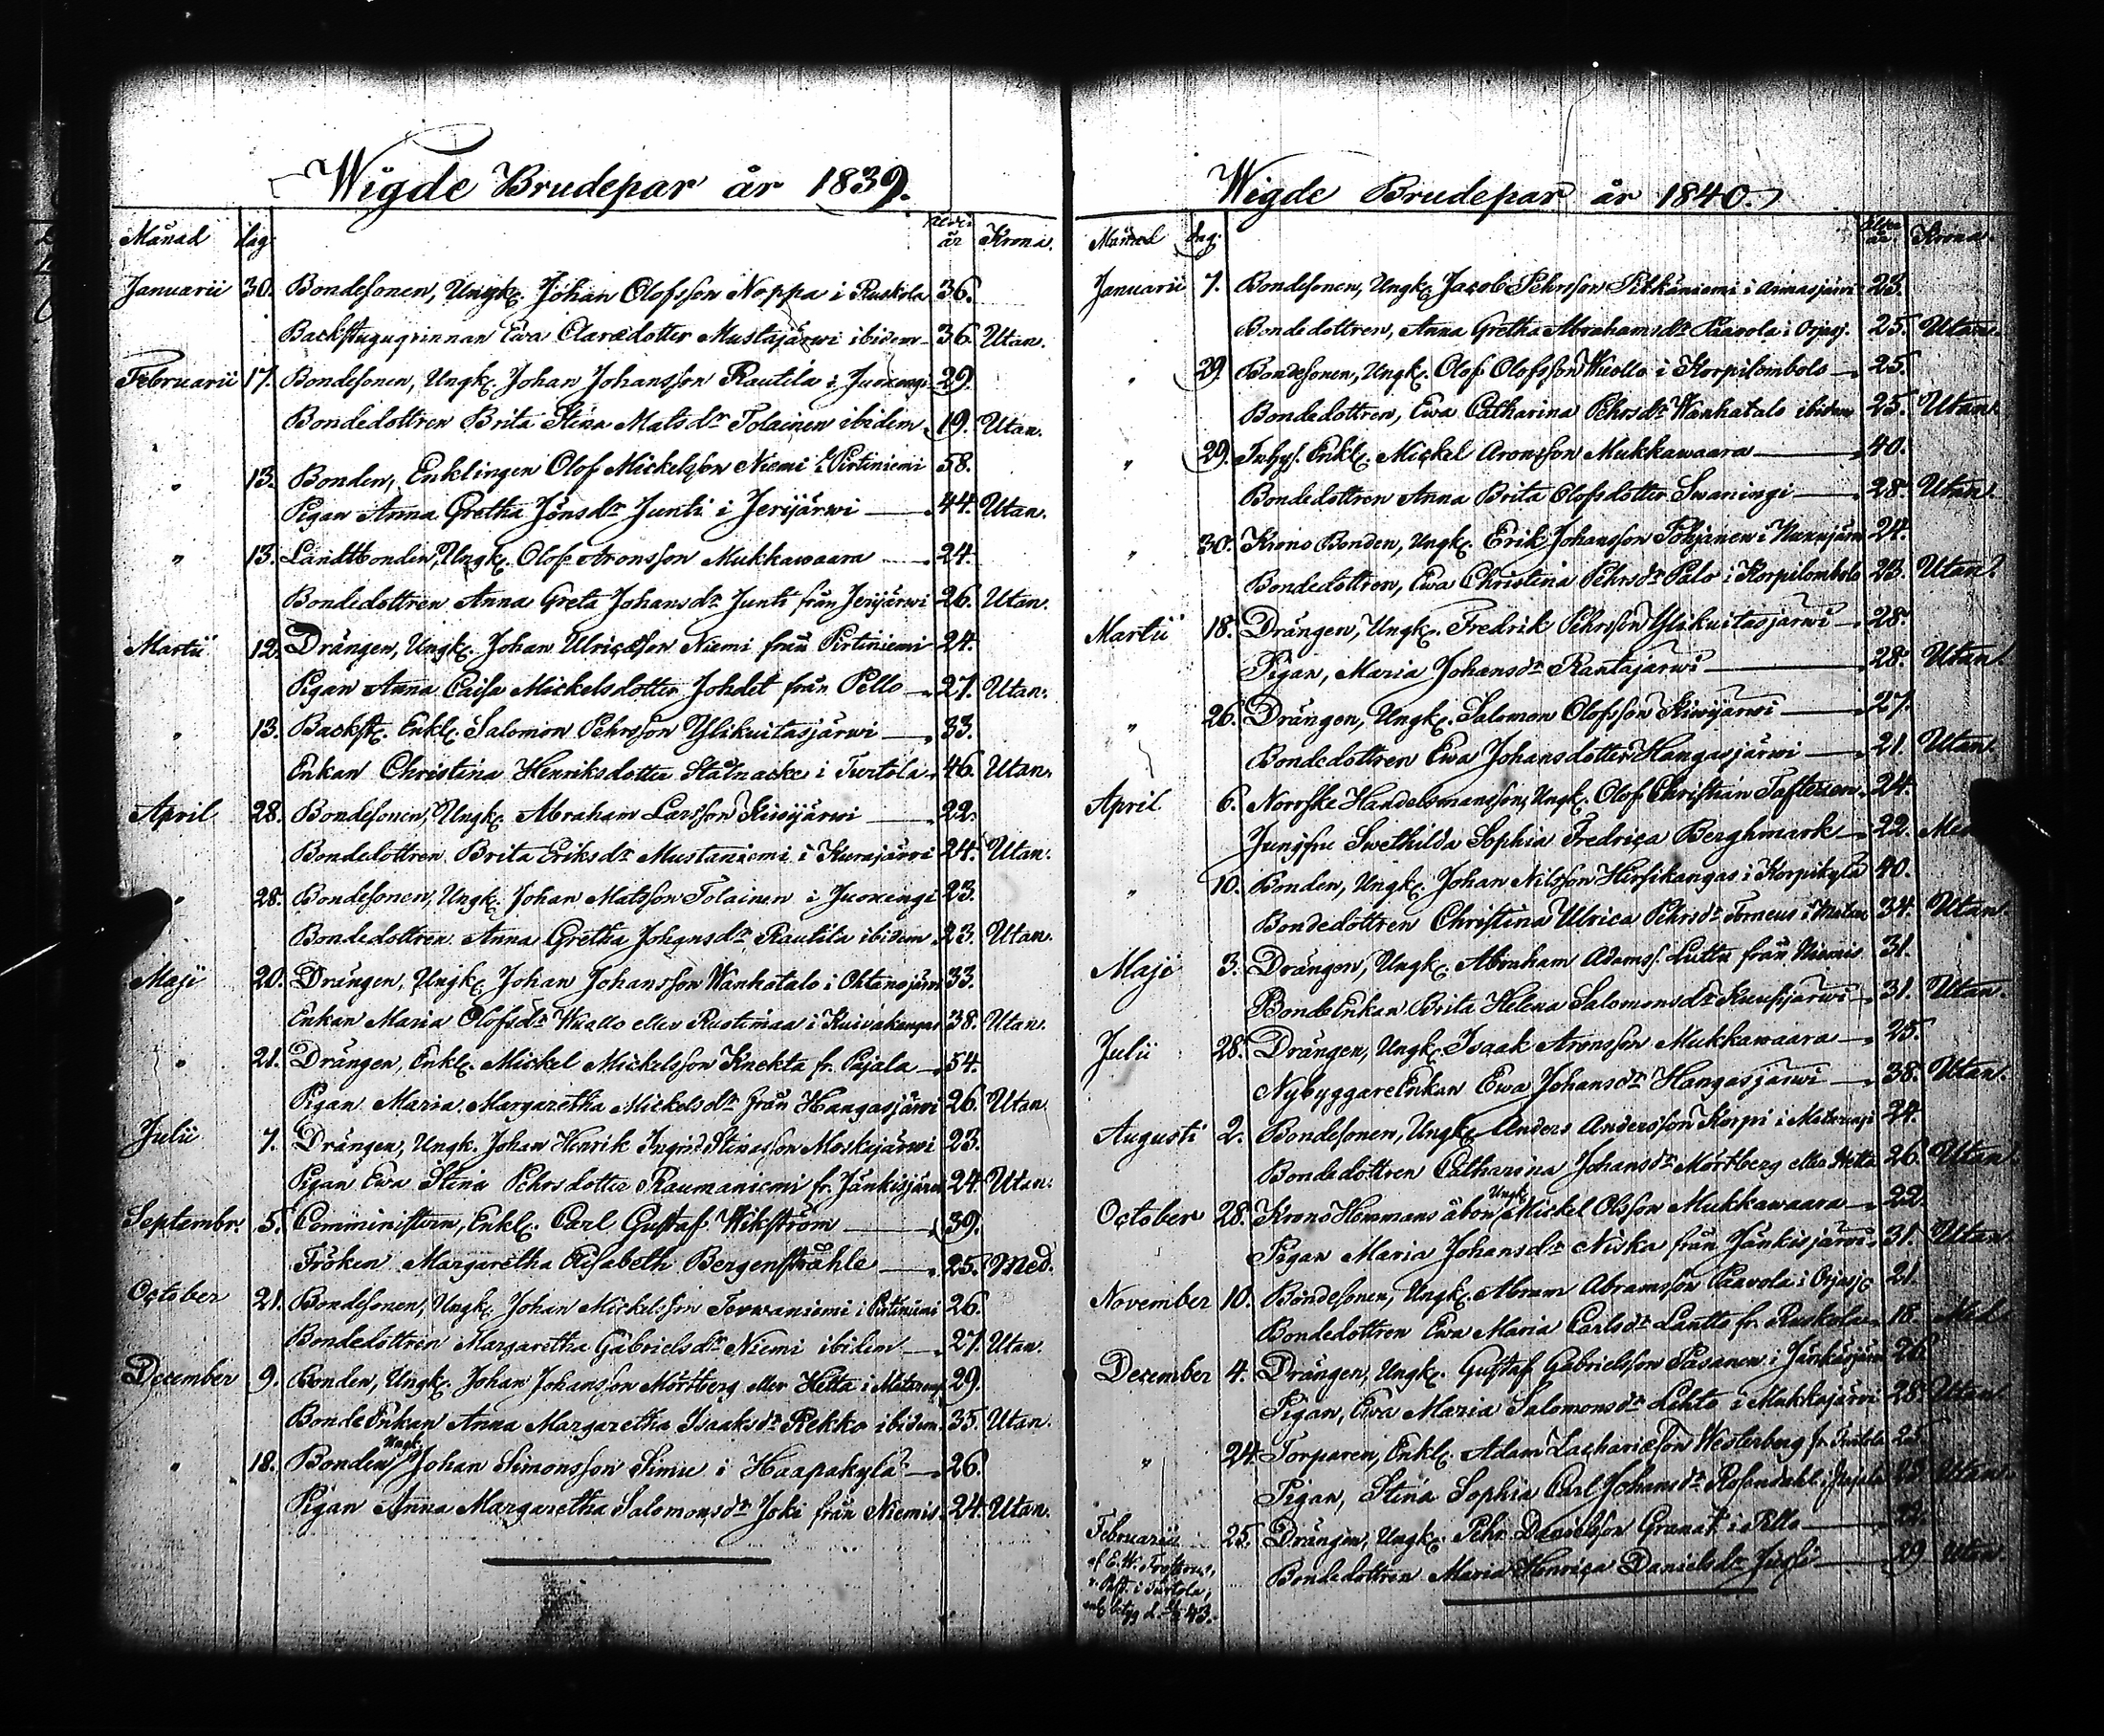 Wigde Brudepar år 1839.
Månad dag. Ålder år Krona.
Januarii 30. Bondesonen, Ungk. Johan Olofsson Noppa i Ruskola 36.
Backstuguqvinnan Ewa Claredotter Mustajärwi ibidem 36. Utan.
Februarii 17. Bondesonen, Ungk. Johan Johansson Rautila i Juoxengi 29.
Bondedottren Brita Stina Matsdr Tolainen ibidem 19. Utan.
" 13. Bonden, Enklingen Olof Mickelsson Niemi i Pirtiniemi 58.
Pigan Anna Gretha Jönsdr Junti i Jerijärwi 44. Utan.
" 13. Landtbonden, Ungk. Olof Aronsson Mukkawaara 24.
Bondedottren Anna Greta Johansdr Junti från Jerijärwi 26. Utan.
Martii 12. Drängen, Ungk. Johan Ulricsson Niemi från Pirtiniemi 24.
Pigan Anna Caisa Mickelsdotter Johdet från Pello 27. Utan.
" 13. Backst. Enkl. Salomon Pehrsson Ylikuitasjärwi 33.
Enkan Christina Henriksdotter Stålnacke i Turtola 46. Utan.
April 28. Bondesonen, Ungk. Abraham Larsson Kiwijärwi 22.
Bondedottren Brita Eriksdr Mustaniemi i Kurajärwi 24. Utan.
" 28. Bondesonen, Ungk. Johan Matsson Tolainen i Juoxengi 23.
Bondedottren Anna Gretha Johansdr Rautila ibidem 23. Utan.
Maji 20. Drängen, Ungk. Johan Johansson Wanhatalo i Ohtanajärwi 33.
Enkan Maria Olofsdr Wuollo eller Rustimaa i Kuivakangas 38. Utan.
" 21. Drängen, Enkl. Mickel Mickelsson Knekta fr. Pajala 54.
Pigan Maria Margaretha Mickelsdr från Hangasjärwi 26. Utan
Julii 7. Drängen, Ungk. Johan Henrik Ingrid Stinasson Moskajärwi 23.
Pigan Ewa Stina Pehrsdotter Raumaniemi fr. Jänkisjärwi 24. Utan.
Septembr. 5. Comministern, Enkl. Carl Gustaf Wikström 39.
Fröken Margaretha Elisabeth Bergenstråhle 25. Med.
October 21. Bondesonen, Ungk. Johan Mickelsson Terwaniemi i Pirtiniemi 26.
Bondedottren Margaretha Gabrielsdr Niemi ibidem 27. Utan.
December 9. Bonden, Ungk. Johan Johansson Mörtberg eller Hetta i Matarengi 29.
BondeEnkan Anna Margaretha Isaksdr Rekko ibidem 35. Utan.
" 18. Bonden, Ungk. Johan Simonsson Simu i Haapakylä 26.
Pigan Anna Margaretha Salomonsdr Joki från Niemis 24. Utan.
Wigde Brudepar år 1840.
Månad dag. Ålder år. Krona.
Januarii 7. Bondesonen, Ungk. Jacob Pehrsson Pitkäniemi i Armasjärwi 23.
Bondedottren, Anna Gretha Abrahamsdr Paavola i Orjasj. 25. Utan.
" 29. Bondesonen, Ungk. Olof Olofsson Wuollo i Korpilombolo 25.
Bondedottren, Ewa Catharina Pehrsdr Wanhatalo ibidem 25. Utan.
" 29. Inhys. Enkl. Mickel Aronsson Mukkawaara 40.
Bondedottren Anna Brita Olofsdotter Swaningi 28. Utan.
" 30. KronoBonden, Ungk. Erik Johansson Pohjanen i 24.
Bondedottren, Ewa Christina Pehrsdr Palo i Korpilombolo 23. Utan.
Martii 18. Drängen, Ungk. Fredrik Pehrsson Ylikuitasjärwi 28.
Pigan, Maria Johansdr Rantajärwi 28. Utan.
" 26. Drängen, Ungk. Salomon Olofsson Kiwijärwi 27.
Bondedottren Ewa Johansdotter Hangasjärwi 21. Utan.
April 6. Norrske Handelsmansson, Ungk. Olof Christian Taftezen 24.
Jungfru Swethilda Sophia Fredrica Berghmark 22. Med
" 10. Bonden, Ungk. Johan Nilsson Hirsikangas i Korpikylä 40.
Bondedottren Christina Ulrica Pehrsdr Torneus i 34. Utan.
Maji 3. Drängen, Ungk. Abraham Adams. Luttu från Niemis 31.
BondeEnkan Brita Helena Salomonsdr Kuusijärwi 31. Utan.
Julii 28. Drängen, Ungk. Isaak Aronsson Mukkawaara 25.
NybyggareEnkan Ewa Johansdr Hangasjärwi 38. Utan.
Augusti 2. Bondesonen, Ungk. Anders Andersson Korpi i Matarengi 24.
Bondedottren Catharina Johansdr Mörtberg eller Hetta 26. Utan.
October 28. KronoHemmans åbon, Ungk. Mickel Olsson Mukkawaara 22.
Pigan Maria Johansdr Niska från Jänkisjärwi 31. Utan.
November 10. Bondesonen, Ungk. Abram Abramsson Paavola i Orjasj. 21.
Bondedottren Ewa Maria Carlsdr Lantto fr. Ruskola 18. Med
December 4. Drängen, Ungk. Gustaf Gabrielsson Pasanen i Jänkisjärwi 26.
Pigan, Ewa Maria Salomonsdr Lehto i Mukkajärwi 28. Utan
" 24. Torparen, Enkl. Adam Zachariesson Westerberg fr. Turtola 25.
Pigan, Stina Sophia Carl Johansdr Rosendahl i Utan.
Februarii 25. Drängen, Ungk. Pehr Danielsson Granat i Pello 22.
Bondedottren Maria Henrica Danielsdr Juusi 29 Utan
i Turtola,